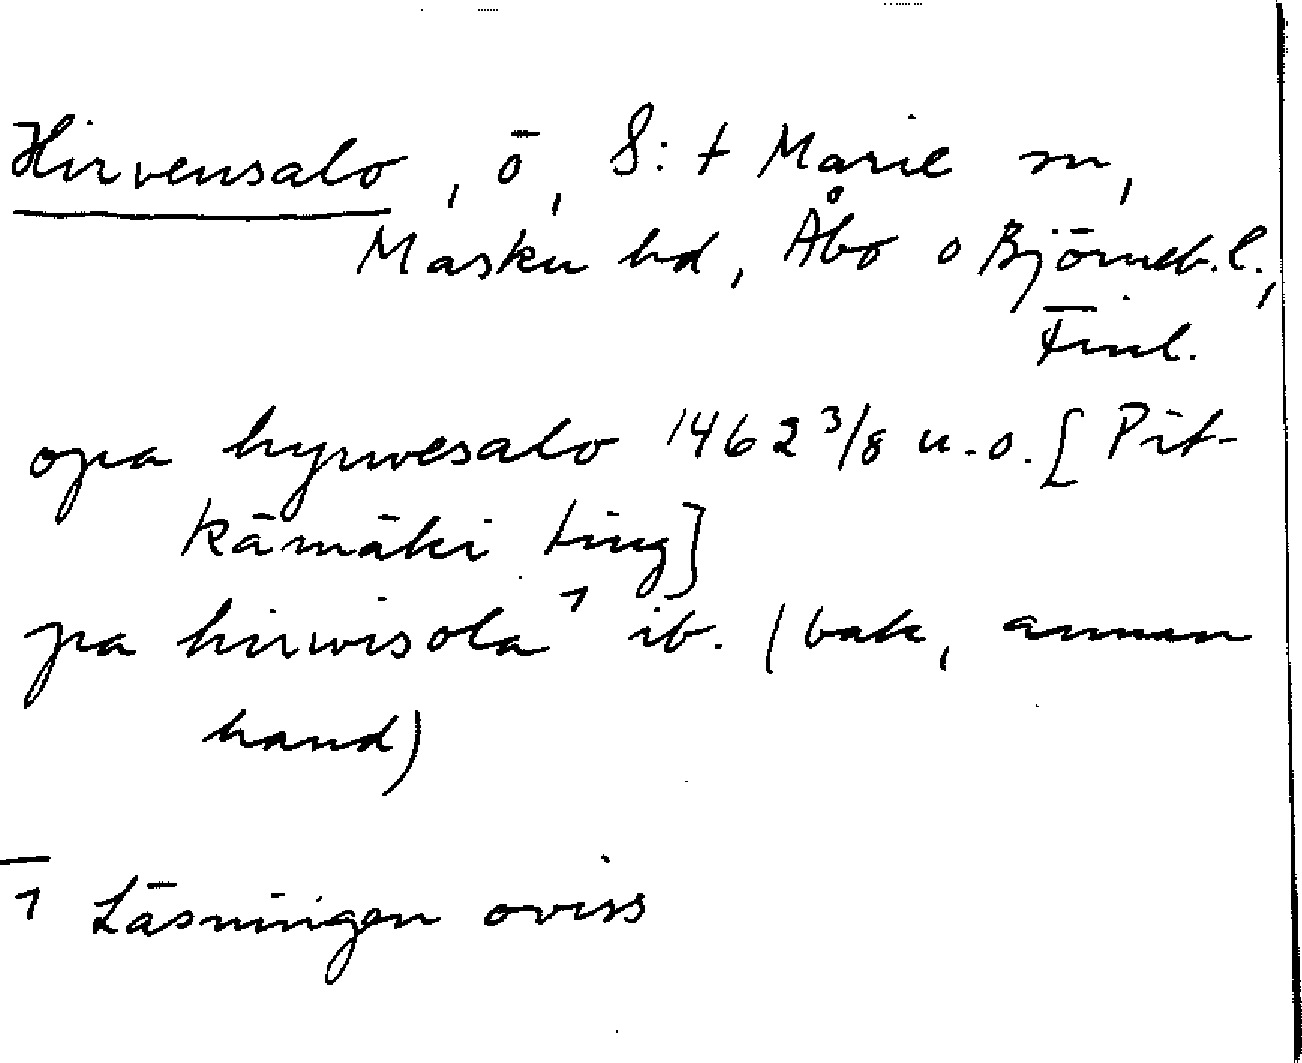 Hirvensalo, ö, S:t Marie sn,
Masku hd, Åbo o Björneb. l.,
Finl.
opa hyrwesalo 1462 3/8 u.o. [Pit-
kämäki ting]
pa hirwisola¹ ib. (bak, annan
hand)
1 Läsningen oviss